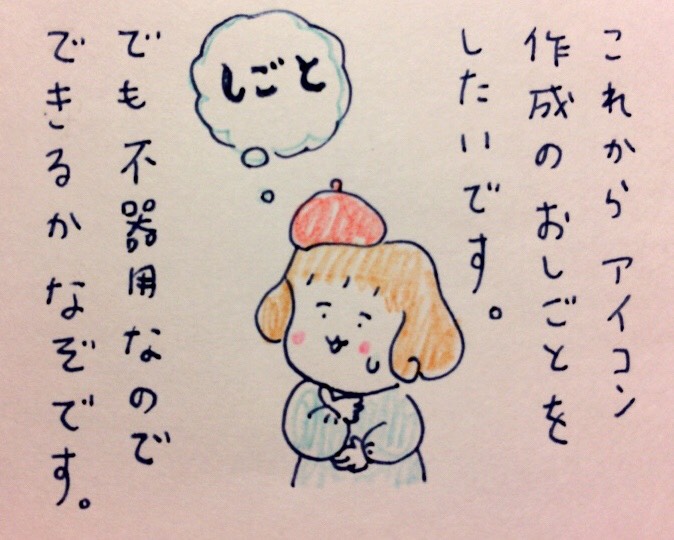 これから アイコン
作成の おしごとを
したいです。
しごと
でも 不器用なので
できるか なぞです。